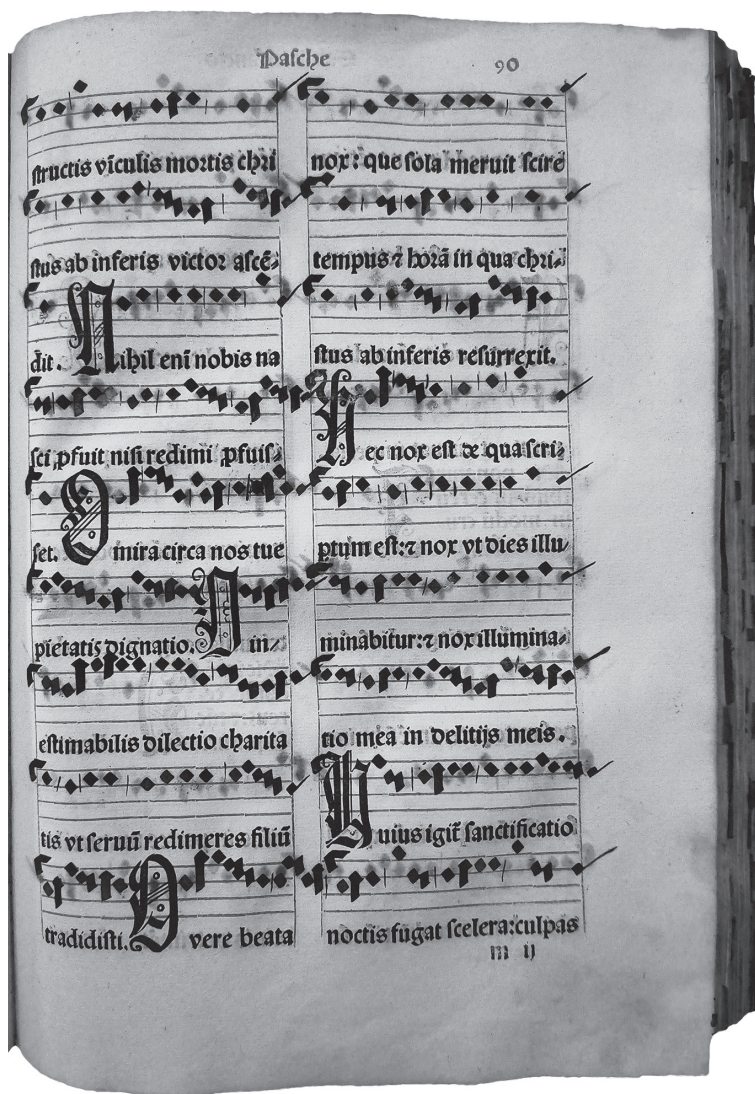 Pasche
90
structis vīculis mortis chri
stus ab inferis victor ascē⸗
dit. Nihil enī nobis na
sci ꝓfuit nisi redimi ꝓfuis⸗
set. O mira circa nos tue
pietatis dignatio. O in⸗
estimabilis dilectio charita
tis vt seruū redimeres filiū
tradidisti. O vere beata
nox: que sola meruit scire
tempus ⁊ horā in qua chri⸗
stus ab inferis resurrexit.
Hec nox est de qua scri⸗
ptum est:⁊ nox vt dies illu⸗
minabitur:⁊ nox illumina⸗
tio mea in delitijs meis.
Huius igit̄ sanctificatio
noctis fugat scelera:culpas
m ij